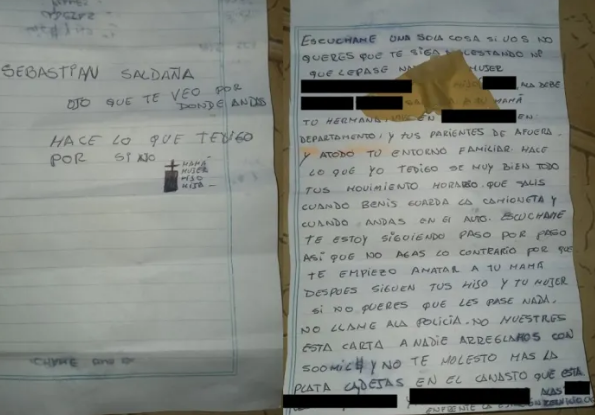 SEBASTIAN SALDAÑA
OJO QUE TE VEO POR
DONDE ANDAS
HACE LO QUE TEDIGO
POR SI NO
MAMA
MUJER
HIJO
HIJA
ESCUCHAME UNA SOLA COSA SI VOS NO
QUERES QUE TE SIGA MOLESTANDO NI
QUE LEPASE MUJER
HIJO DEBE
A TU MAMÁ
TU HERMANA EN EN
DEPARTAMENTO, Y TUS PARIENTES DE AFUERA.
Y ATODO TU ENTORNO FAMILIAR HACE
LO QUE YO TEDIGO SE MUY BIEN TODO
TUS MOVIMIENTO HORARIO. QUE SALIS
CUANDO BENIS GUARDA LA CAMIONETA Y
CUANDO ANDAS EN EL AUTO. ESCUCHAME
TE ESTOY SIGUIENDO PASO POR PASO
ASI QUE NO AGAS LO CONTRARIO POR QUE
TE EMPIEZO AMATAR A TU MAMÁ
DESPUES SIGUEN TUS HIJO Y TU MUJER
SI NO QUERES QUE LES PASE NADA.
NO LLAME ALA POLICIA. NO MUESTRES
ESTA CARTA A NADIE ARREGLAMOS CON
500MIL$ Y NO TE MOLESTO MAS LA
PLATA EN EL CANASTO QUE ESTA
ENFRENTE LA